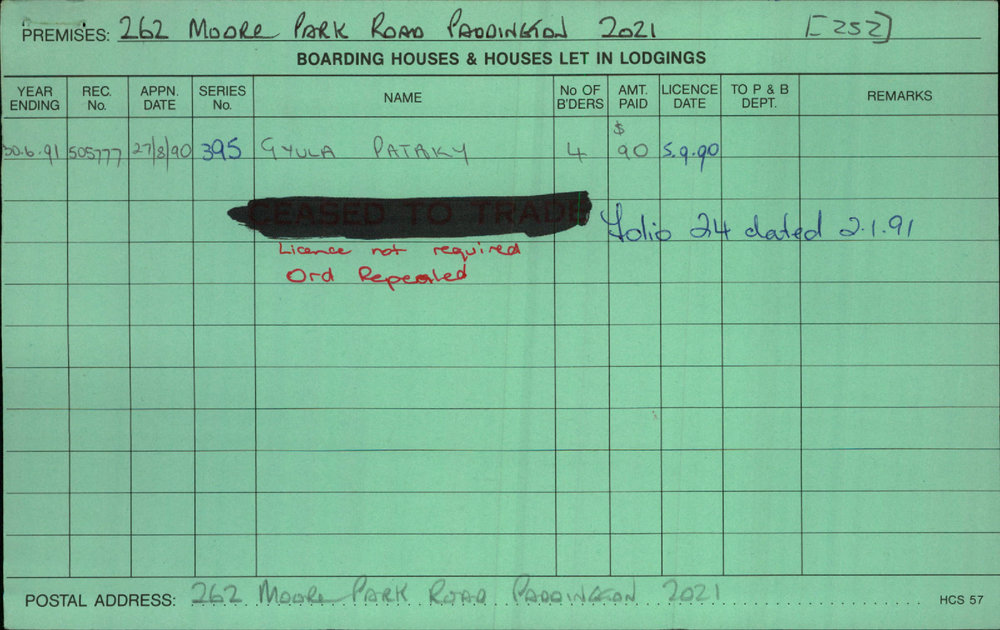 PREMISES: 262 MOORE PARK ROAD PADDINGTON 2021 [252]
BOARDING HOUSES & HOUSES LET IN LODGINGS
YEAR ENDING REC. No. APPN. DATE SERIES No. NAME No OF B'DERS AMT. PAID LICENCE DATE TO P & B DEPT. REMARKS
30.6.91 505777 27/8/90 395 GYULA PATAKY 4 $ 90 5.9.90
CEASED TO TRADE
Folio 24 dated 2.1.91
Licence not required
Ord Repealed
POSTAL ADDRESS: 262 MOORE PARK ROAD PADDINGTON 2021
HCS 57